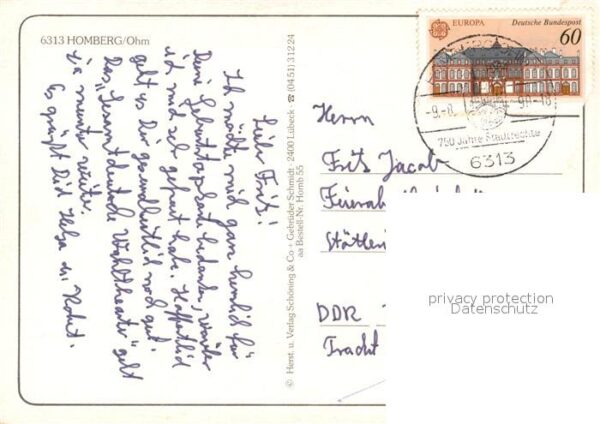 6313 HOMBERG/Ohm
Lieber Fritz!
Ich möchte mich ganz herzlich für
Deine Geburtstagskarte bedanken, worüber
ich mich sehr gefreut habe. Hoffentlich
geht es Dir gesundheitlich noch gut.
Das "Gesamtdeutsche Wahltheater" geht
ja munter weiter.
Es grüßt Dich Helga u. Robert.
© Herst. u. Verlag Schöning & Co + Gebrüder Schmidt · 2400 Lübeck · ☎ (04 51) 3 12 24
aa Bestell-Nr. Homb 55
EUROPA Deutsche Bundespost
60
-9.-8. 90-18
750 Jahre Stadtrechte
6313
Herrn
Fritz Jacob
DDR
privacy protection
Datenschutz